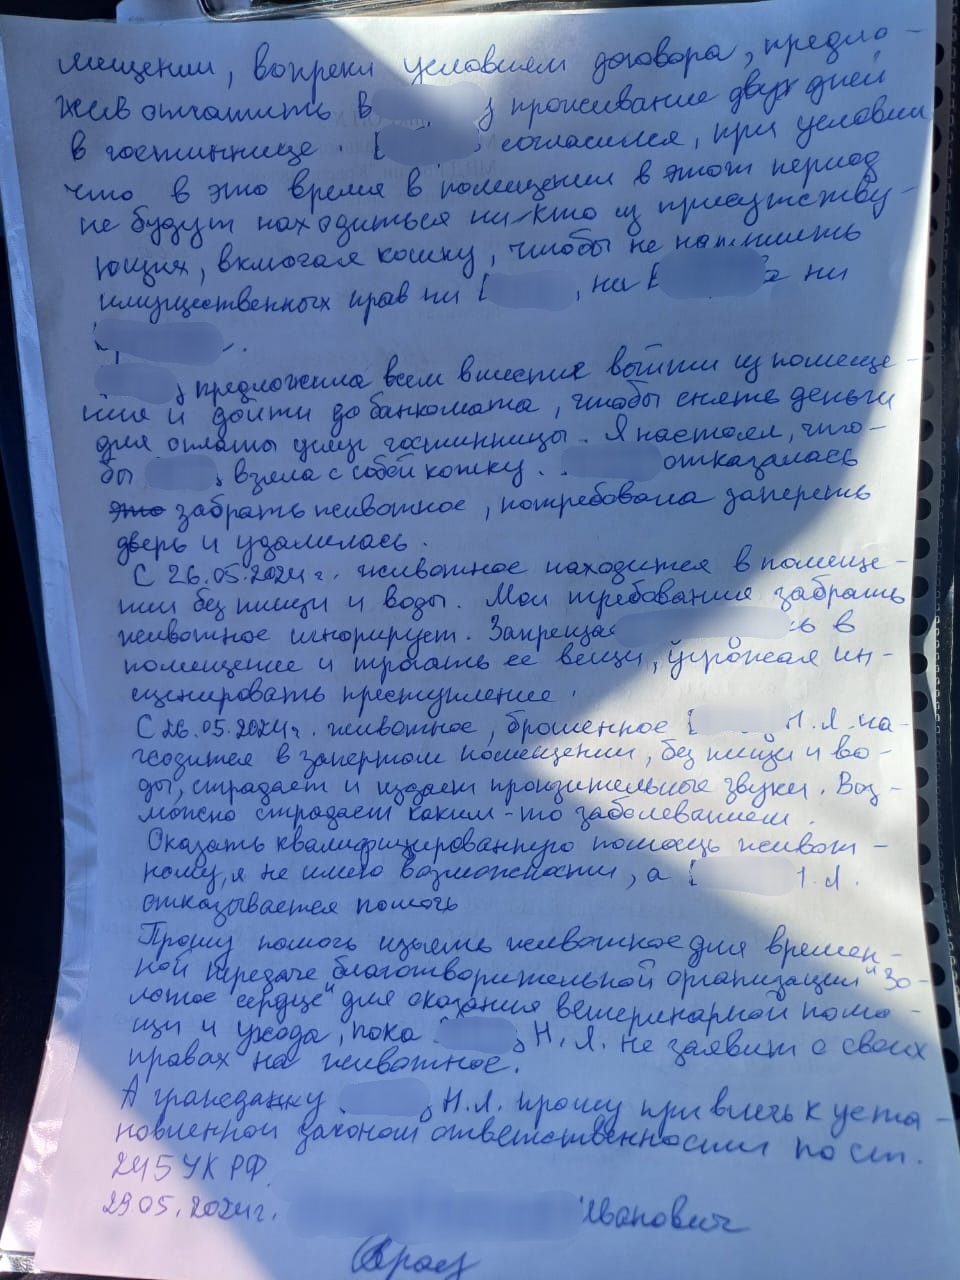 мещении, вопреки условием договора, предло-
жив отчатить В проживание двух дней
в гостиннице. согласился, при условии
что в это время в помещении в этот период
не будут находиться ни-кто из присутству-
ющих, включая кошку, чтобы не нарушить
имущественных прав ни , на Е а ни
предложила всем вместе выйти из помеще-
ния и дойти до банкомата, чтобы снять деньги
для оплаты услуг гостинницы. Я настоял, что-
бы взяла с собой кошку. отказалась
это забрать животное, потребовала запереть
дверь и удалилась.
С 26.05.2024г. животное находится в помеще-
нии без пищи и воды. Мои требования забрать
животное игнорирует. Запреща ь в
помещение и трогать ее вещи, угрожая ин-
сценировать преступление.
С 26.05.2024г. животное, брошенное Н.Я. на-
ходится в запертом помещении, без пищи и во-
ды, страдает и издает пронзительные звуки. Воз-
можно страдает каким-то заболеванием.
Оказать квалифицированную помощь живот-
ному, я не имею возможности, а Я.
отказывается помочь
Прошу помочь изъять животное для времен-
ной передаче благотворительной организации "Зо-
лотое сердце" для оказания ветеринарной помо-
щи и ухода, пока Н.Я. не заявит о своих
правах на животное.
А гражданку Н.Я. прошу привлечь к уста-
новленной законом ответственности по ст.
245 УК РФ.
29.05.2024г. Иванович